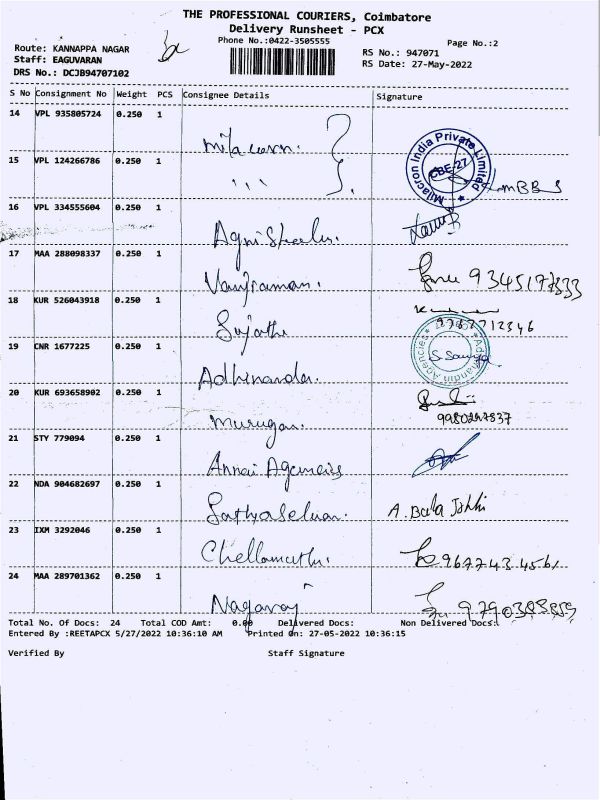 THE PROFESSIONAL COURIERS, Coimbatore
Delivery Runsheet - PCX
Phone No.:0422-3505555
Page No.:2
Route: KANNAPPA NAGAR
Staff: EAGUVARAN
DRS No.: DCJB94707102
RS No.: 947071
RS Date: 27-May-2022
S No Consignment No Weight PCS Consignee Details Signature
14 VPL 935805724 0.250 1
Milacron India Private Limited
CBE-27
15 VPL 124266786 0.250 1
16 VPL 334555604 0.250 1
Agni Steels.
17 MAA 288098337 0.250 1
Vanjiraman.
18 KUR 526043918 0.250 1
Sujatha
19 CNR 1677225 0.250 1
Adhinandin Agencies
20 KUR 693658902 0.250 1
Murugan.
21 STY 779094 0.250 1
Annai Agencies
22 NDA 904682697 0.250 1
Sathyaselvan. A. Bala
23 IXM 3292046 0.250 1
Chellamuthu.
24 MAA 289701362 0.250 1
Nagaraj
Total No. Of Docs: 24 Total COD Amt: 0.00 Delivered Docs: Non Delivered Docs:
Entered By :REETAPCX 5/27/2022 10:36:10 AM Printed On: 27-05-2022 10:36:15
Verified By Staff Signature